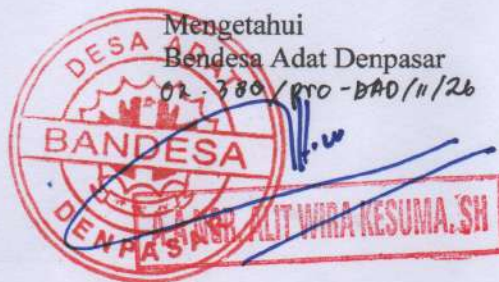 Mengetahui
Bendesa Adat Denpasar
02.380/pro-DAD/11/26
DESA ADAT
BANDESA
DENPASAR
NGR. ALIT WIRA KESUMA. SH